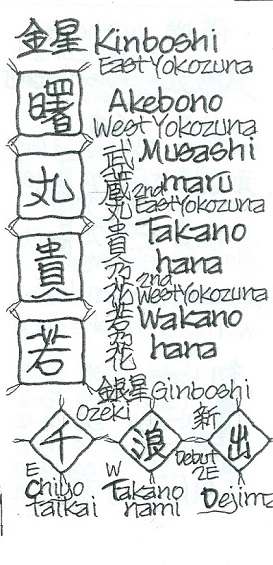 金星 Kinboshi
East Yokozuna
曙 Akebono
West Yokozuna
丸 武蔵丸 Musashi
maru
2nd East Yokozuna
貴 貴乃花 Takano
hana
2nd West Yokozuna
若 若乃花 Wakano
hana
銀星 Ginboshi
Ozeki
新
千 浪 出
Debut
E W 2E
Chiyo Takano Dejima
taikai nami